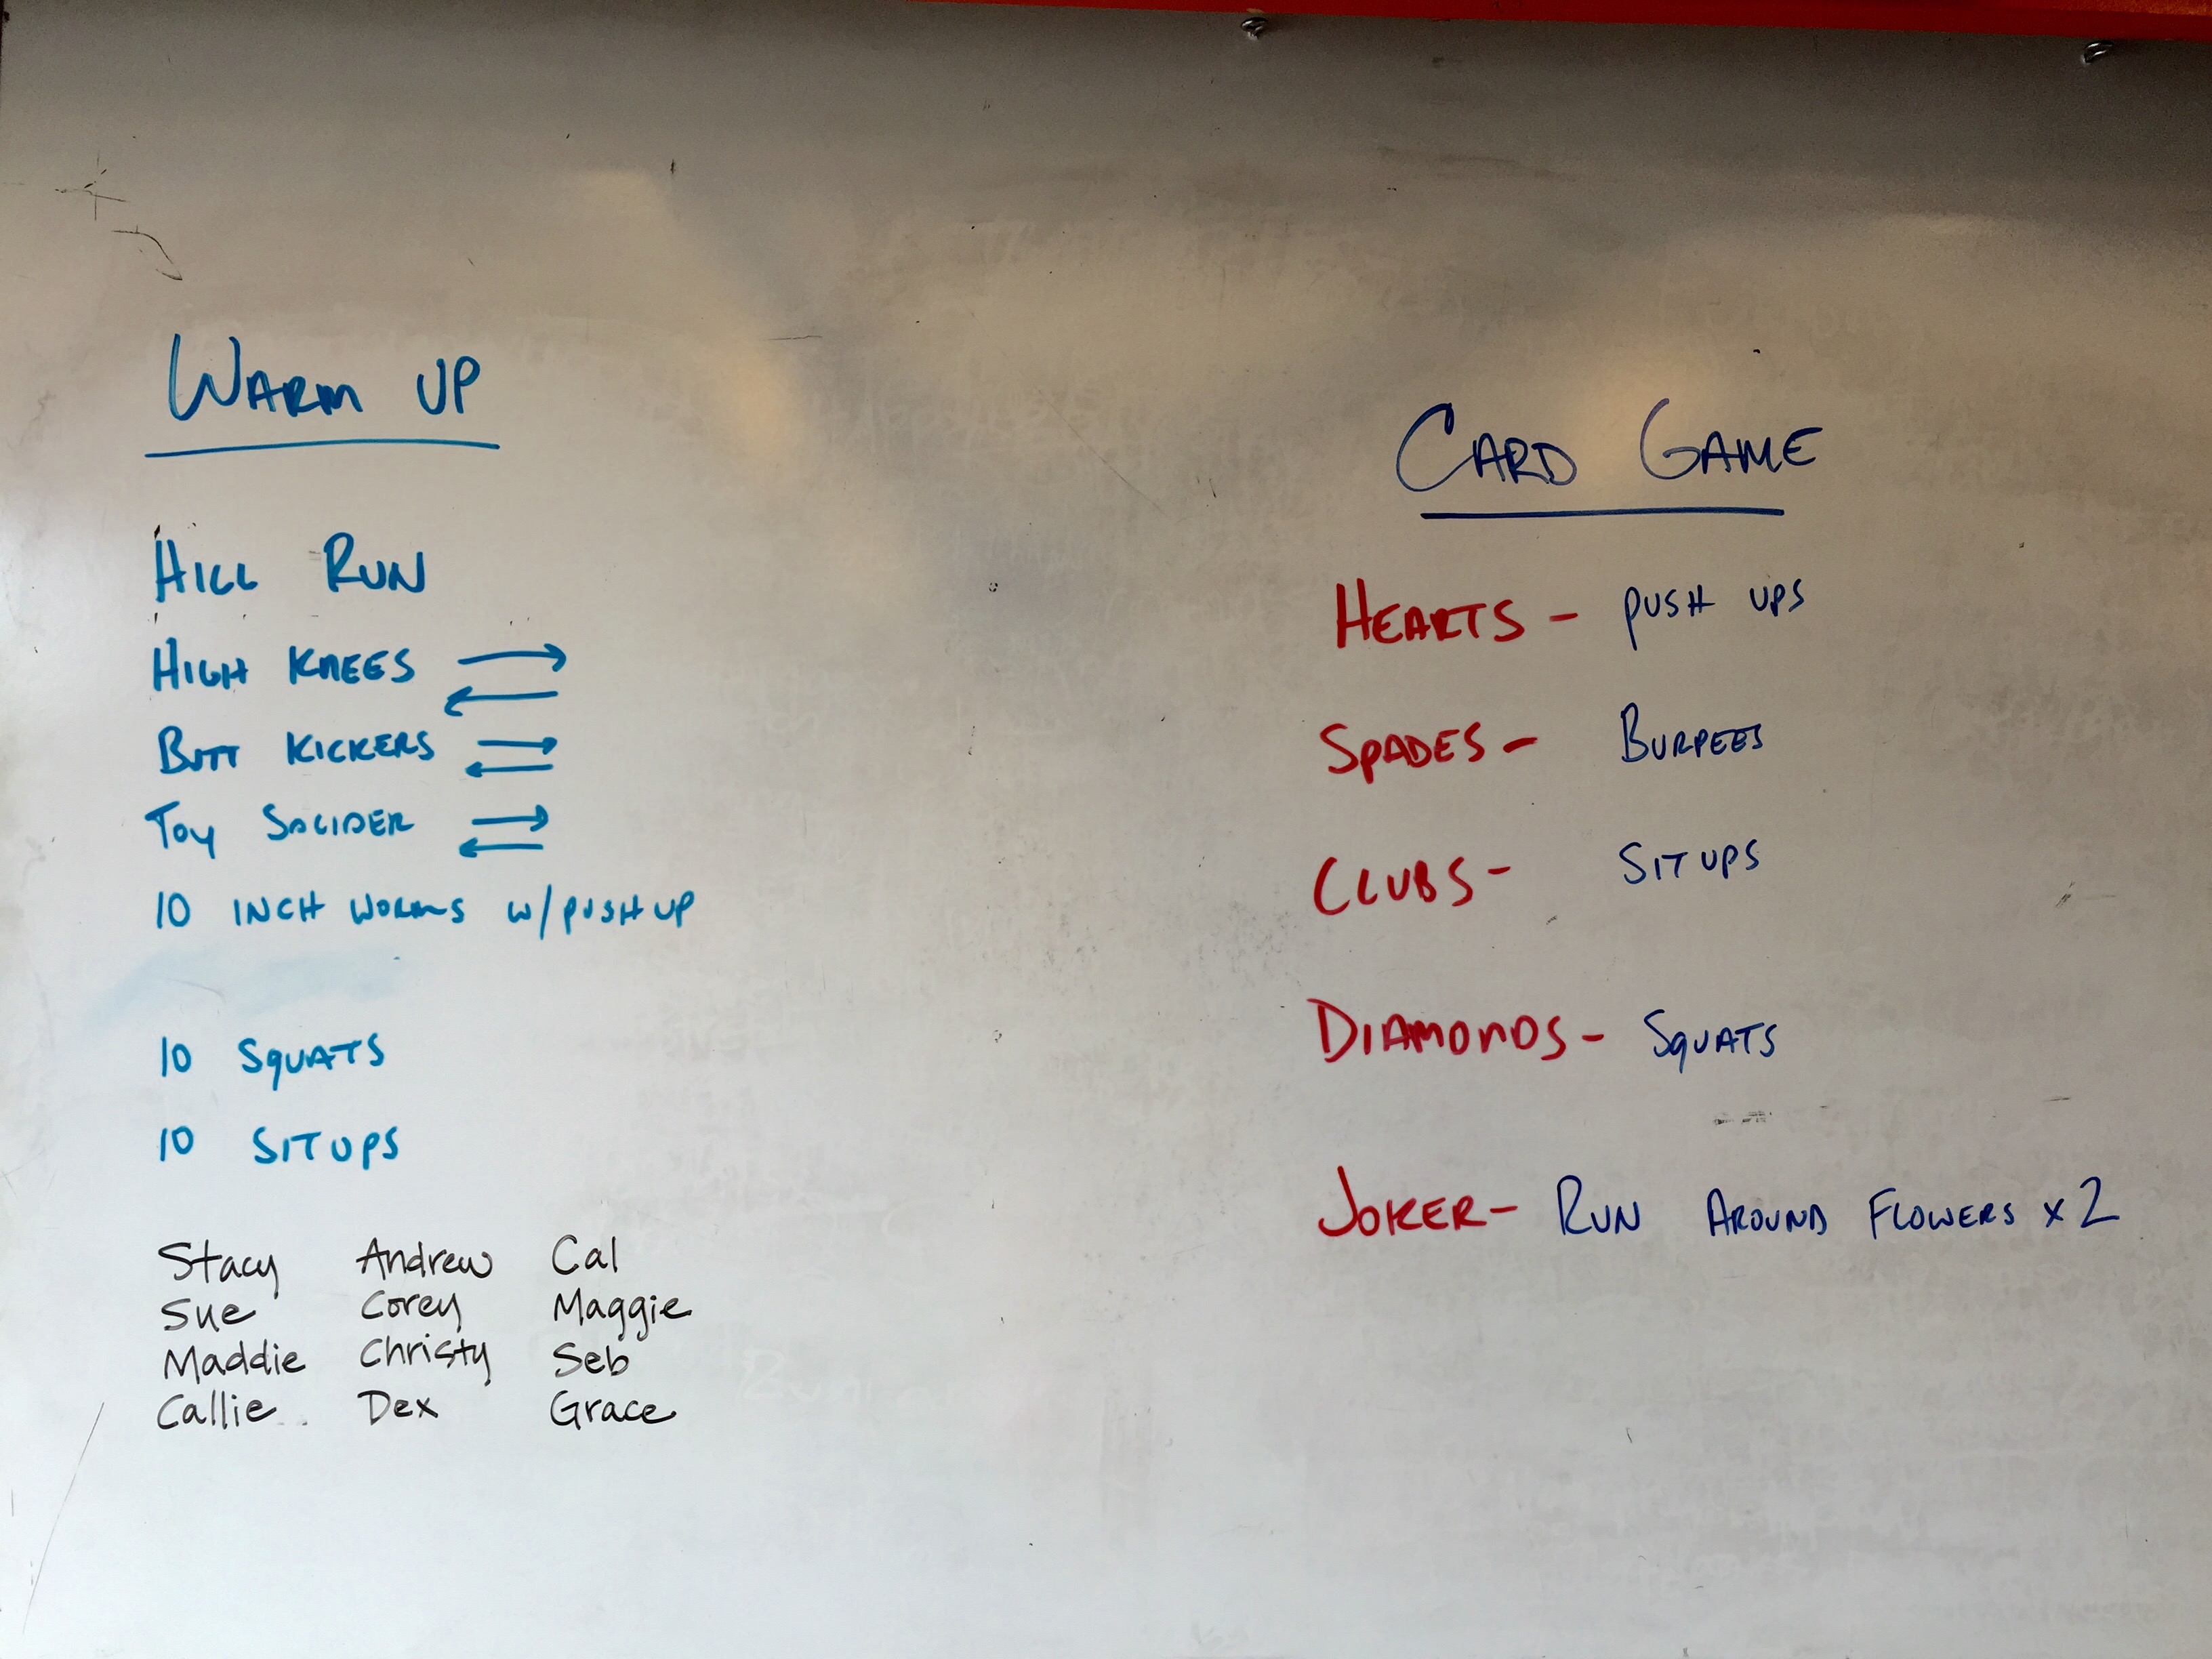 WARM UP
HILL RUN
HIGH KNEES → ←
BUTT KICKERS → ←
TOY SOLIDER → ←
10 INCH WORMS W/PUSH UP
10 SQUATS
10 SIT UPS
Stacy Andrew Cal
Sue Corey Maggie
Maddie Christy Seb
Callie Dex Grace
CARD GAME
HEARTS - PUSH UPS
SPADES - BURPEES
CLUBS - SIT UPS
DIAMONDS - SQUATS
JOKER - RUN AROUND FLOWERS x 2